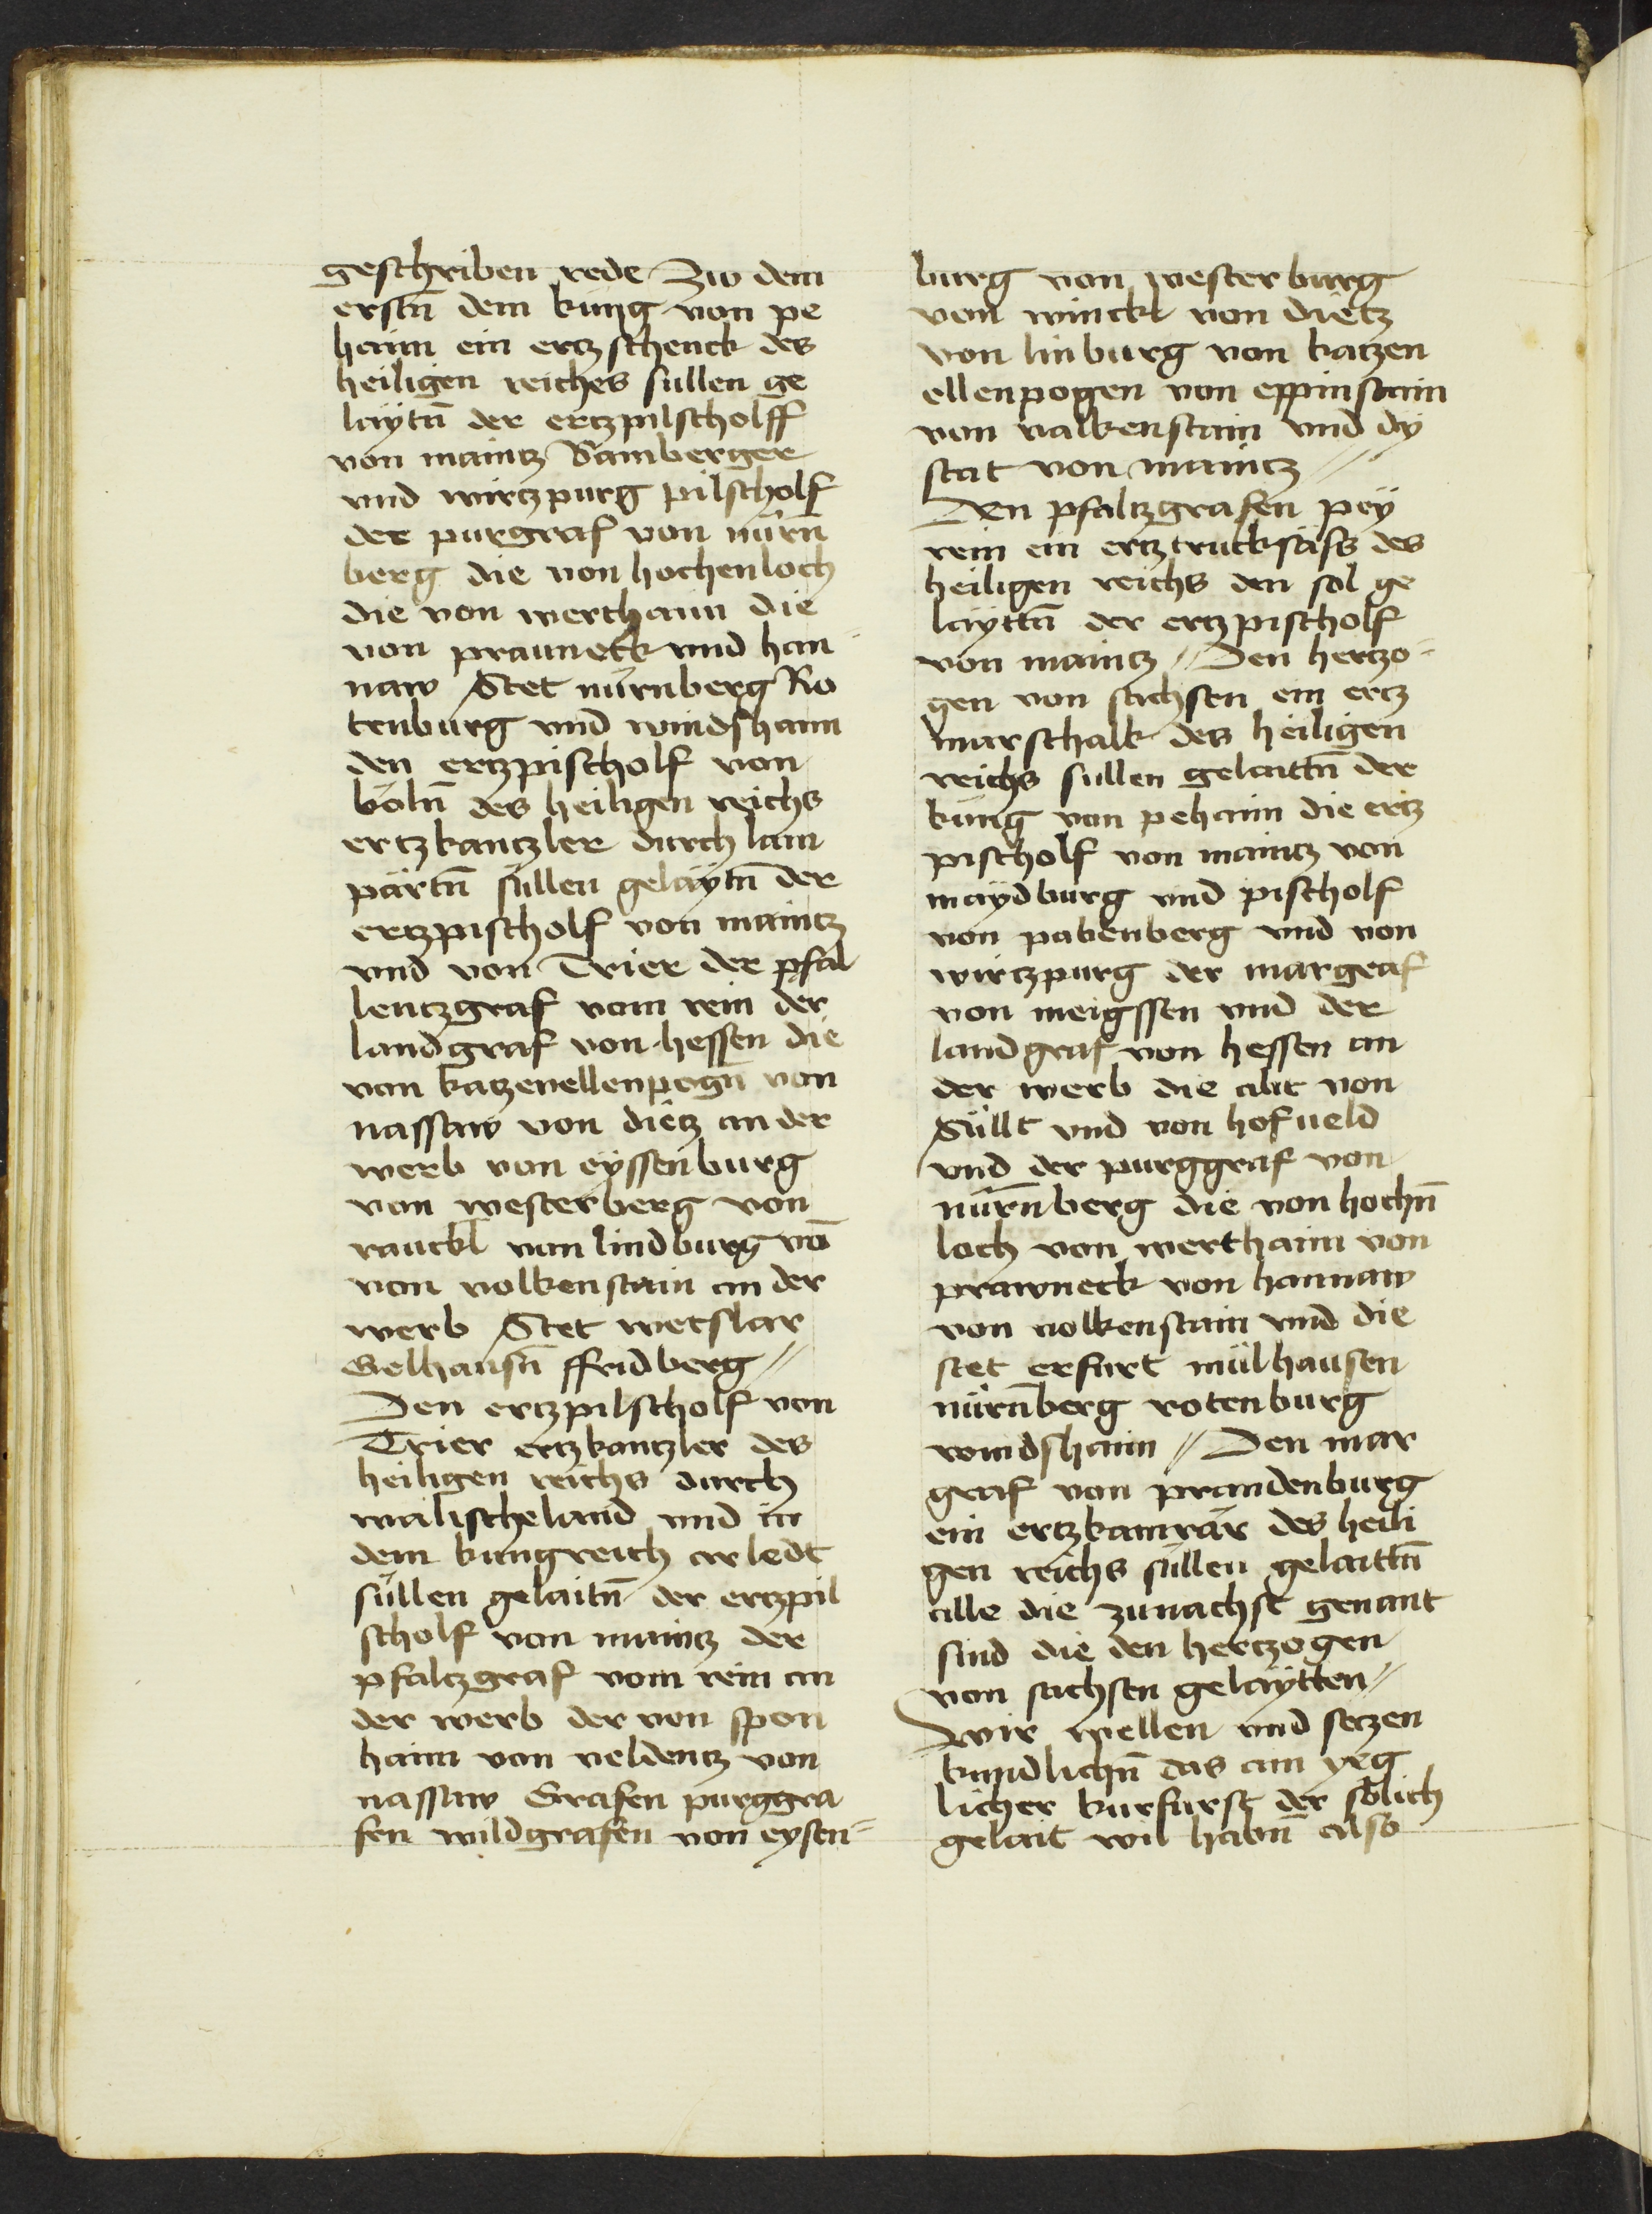 geschriben rede Zw dem
erstn̄ dem kung von pe
haim ein ertzschenck des
heiligen reiches sullen ge
laÿtn̄ der ertzpilscholff
von maintz Bamberger
vnd wirtzpurg pilscholf
der purgraf von nürn̄
berg die von hochenloch
die von werthaim die
von prauneck vnd han=
naw Stet nürnberg Ro
tenburg vnd windshaim
den ertzpischolf von
köln̄ des heiligen reichs
ertzkantzler durch lam
pärtn̄ süllen gelaÿtn̄ der
ertzpischolf von maintz
vnd von Trier der pfal
lentzgraf vom rein der
landgraf von hessen die
von katzenellenpogn̄ von
nassaw von dietz an der
werb von eÿssenburg
von westerberg von
rauckl von lindburg vō
von volkenstain an der
werb Stet wetslar
Gelhausn̄ ffridberg //
Den ertzpilscholf von
Trier ertzkantzler des
heiligen reichs durch
walischeland vnd in
dem kungreich arledt
süllen gelaitn̄ der ertzpil
scholf von maintz der
pfaltzgraf vom rein an
der werb der von spon
haim von veldentz von
nassaw Grafen purggra
fen wildgrafen von eysen=
burg von westerburg
von winckl von dietz
von linburg von katzen
ellenpogen von eppinstain
von valkenstain vnd dÿ
stat von maintz //
Den pfaltzgrafen peÿ
rein ein ertztrucksäss des
heiligen reichs den sol ge
laÿttn̄ der ertzpischolf
von maintz // Den hertzo=
gen von sachsen ein ertz
marschalk des heiligen
reichs sullen gelaittn̄ der
küng von pehaim die ertz
pischolf von maintz von
maÿdburg vnd pischolf
von pabenberg vnd von
wirtzpurg der margraf
von meigssen vnd der
landgraf von hessen an
der werb die abt von
Süllt vnd von hofueld
vnd der purggraf von
nürn̄berg die von hochn̄
loch von werthaim von
prawneck von hannaw
von volkenstain vnd die
stet erfurt mülhausen
nürn̄berg rotenburg
vomdshaim // Den mar
graf von prandenburg
ein ertzkamrär des heili
gen reichs süllen gelaittn̄
alle die zunachst genant
sind die den hertzogen
von sachsen gelaÿtten //
Wir wellen vnd setzen
kundlichn̄ das ain yeg
licher kurfurst der sölich
gelait wil habn̄ also